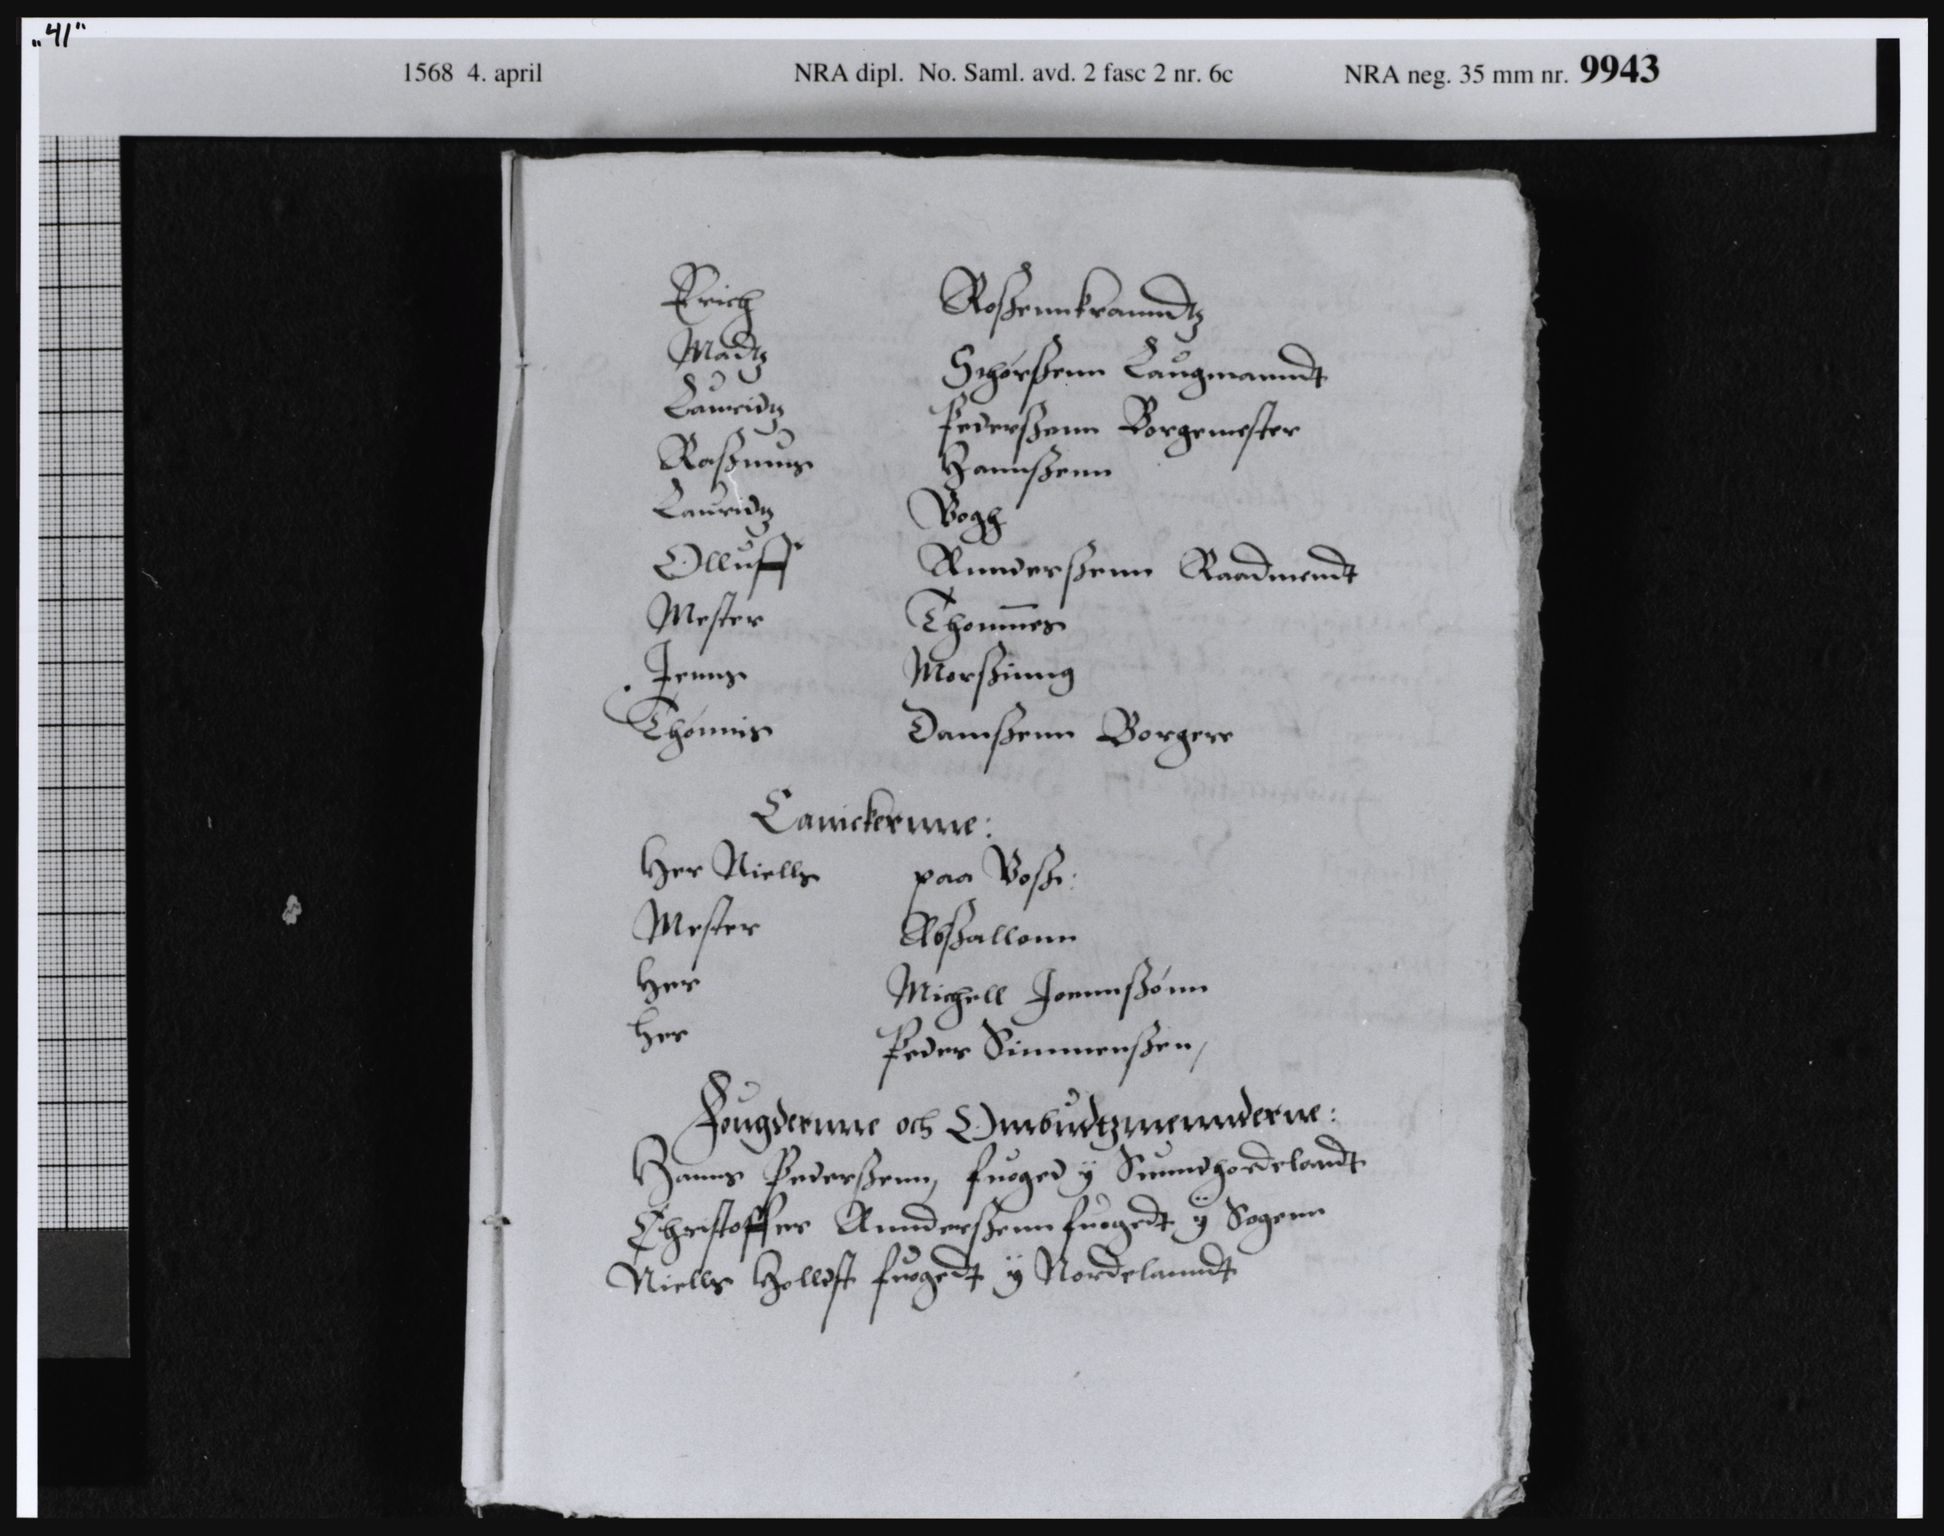 „41"
1568 4. april NRA dipl. No. Saml. avd. 2 fasc 2 nr. 6c NRA neg. 35 mm nr. 9943
Erich Roßennkranndtz
Madtz Schørßenn Laugmanndt
Lauridtz Pederßenn Borgemester
Raßmus Hannßenn
Lauridtz Bogh
Olluff Annderßenn Raadmendt
Mester Thommes
Jenns Morßinng
Thønnis Damßenn Borgere
Canickernne:
Her Niells paa Voss:
Mester Abßallonn
Her Michell Joennßønn
Her Peder Simmenßen,
Fougdernne och Ombudtzmennderne:
Hanns Pederßenn, fuoged ÿ Sunndhordelandt
Christoffer Annderßenn fuogedt ÿ Sogenn
Niells fuogedt ÿ Nordelanndt